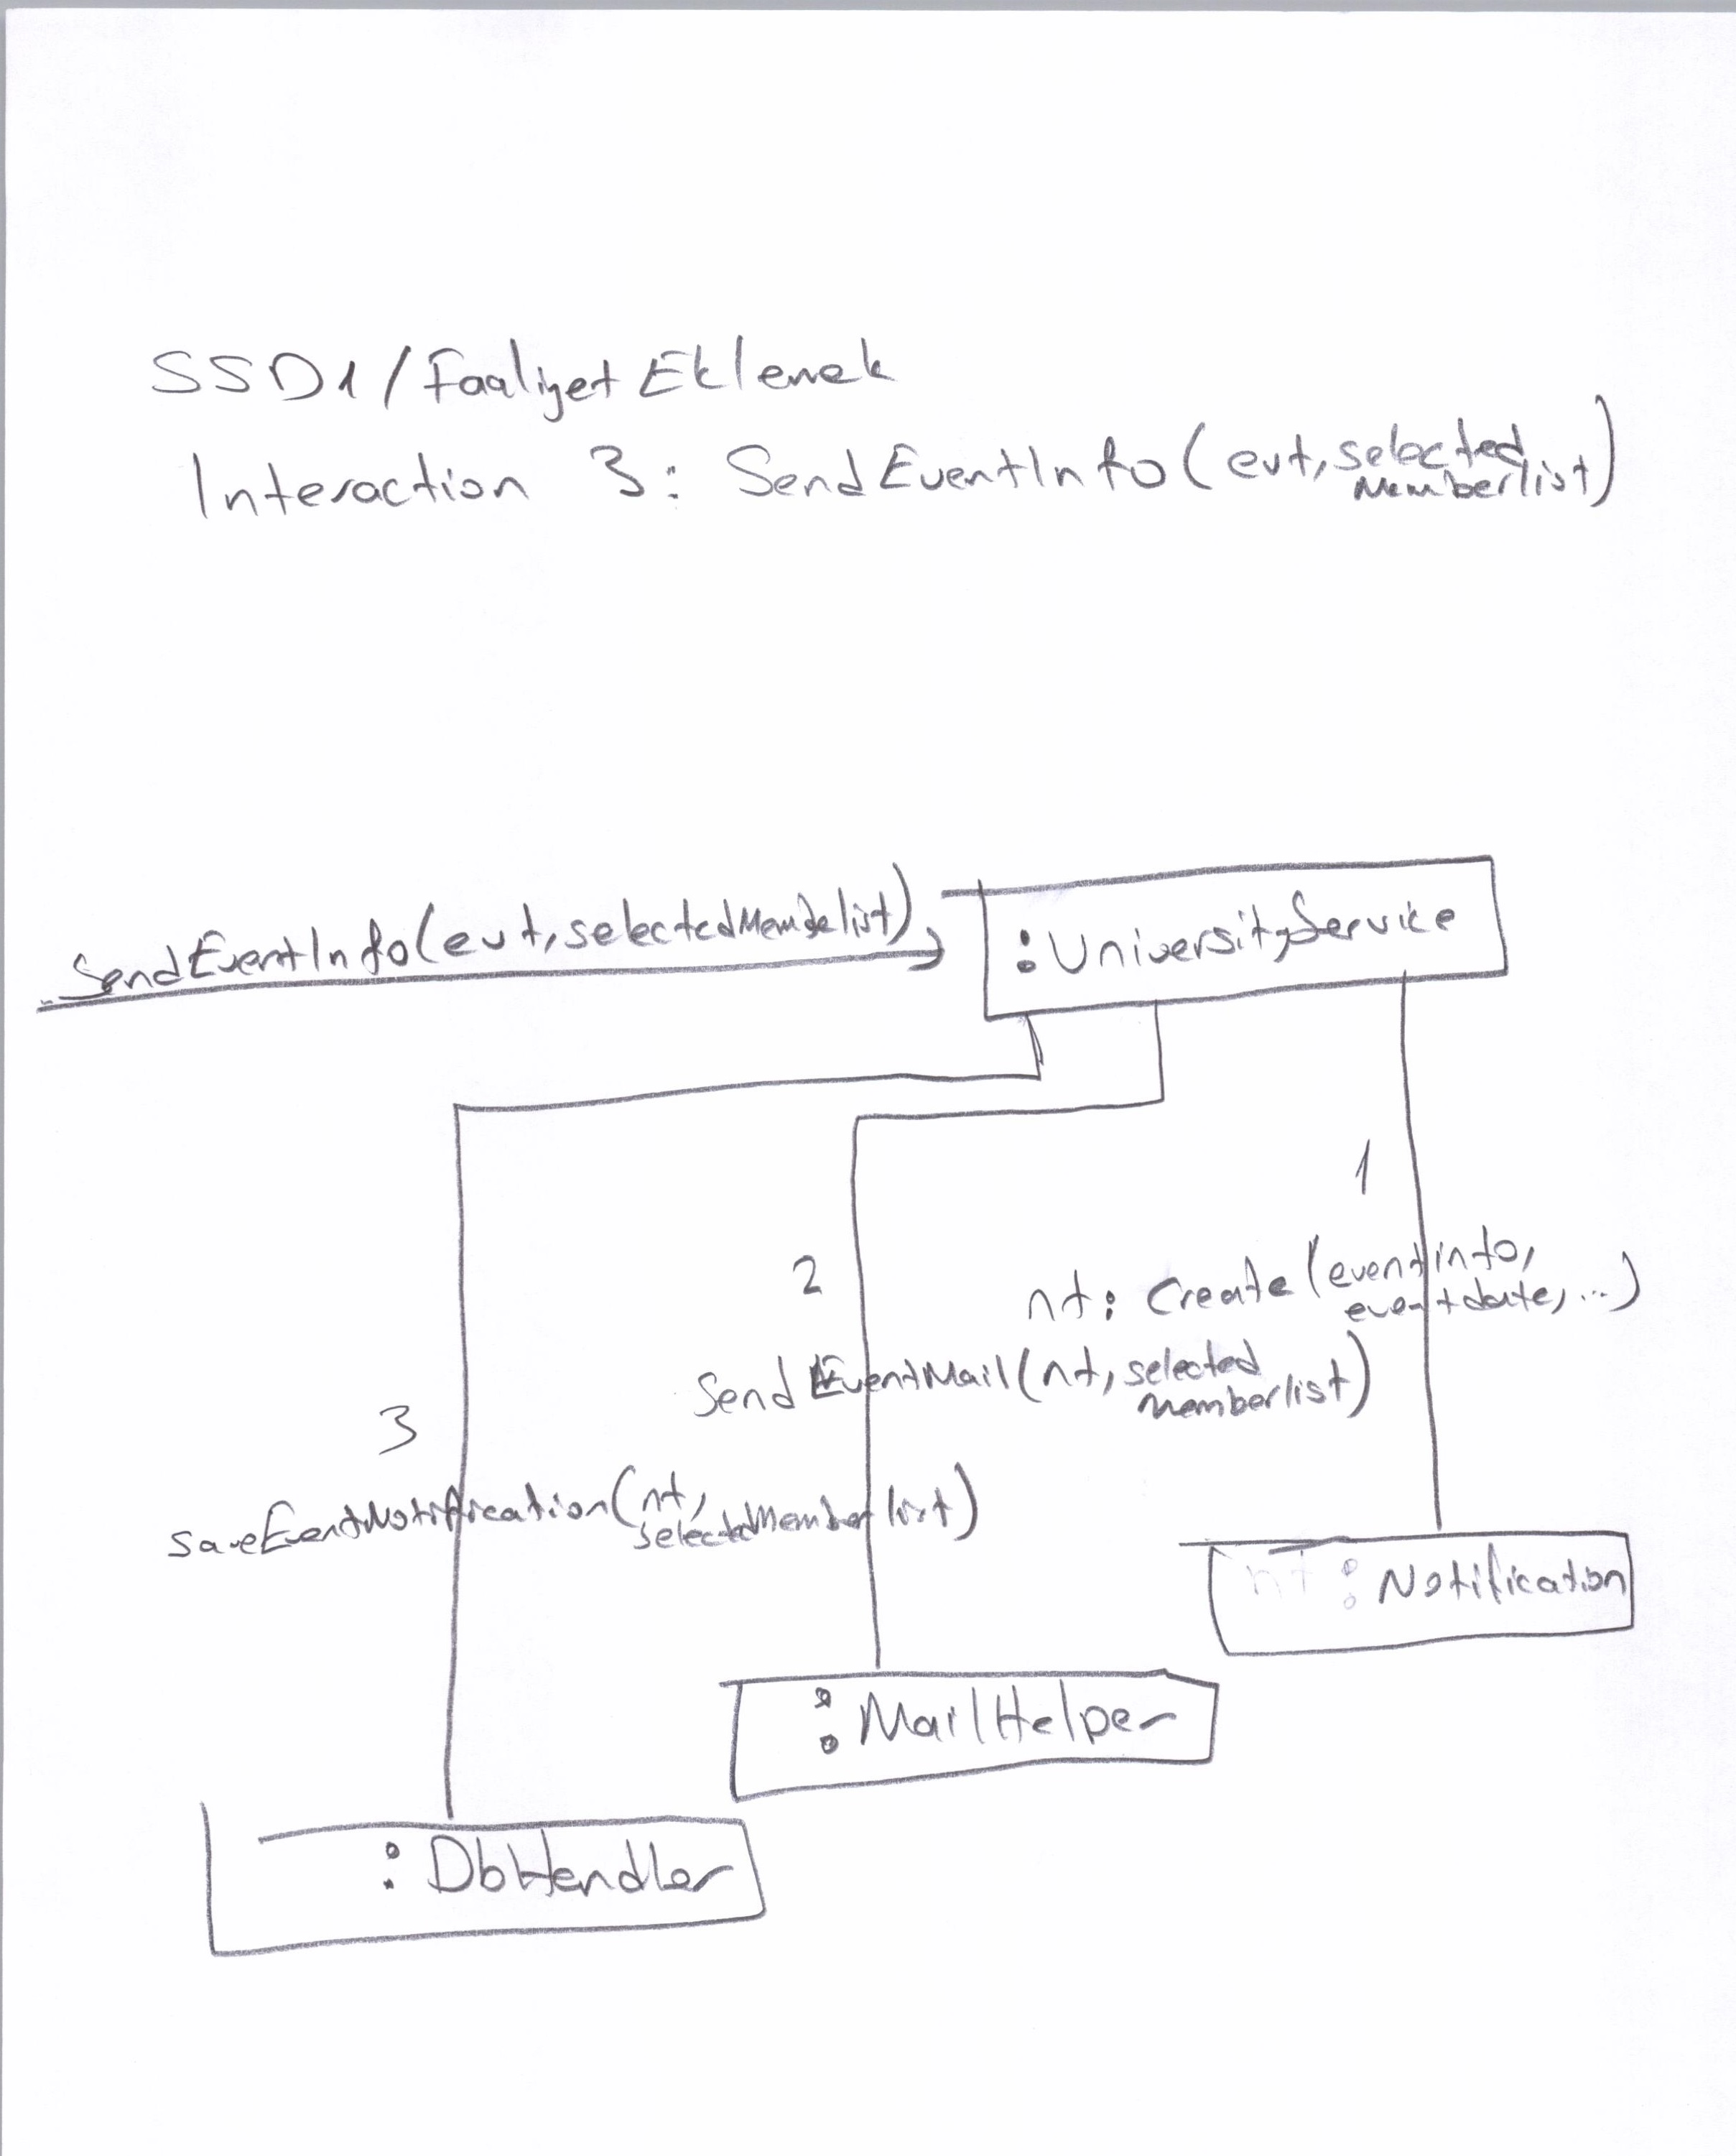 SSD1/Faaliyet Eklemek
Interaction 3: SendEventInfo(evt, selected
Memberlist)
SendEventInfo(evt, selectedMembelist)
:UniversityService
1
nt: Create(eventinfo,
eventdate, ...)
2
SendEventMail(nt, selected
memberlist)
3
saveEventNotification(nt,
selectedMemberlist)
nt :Notification
:MailHelper
:DbHendler